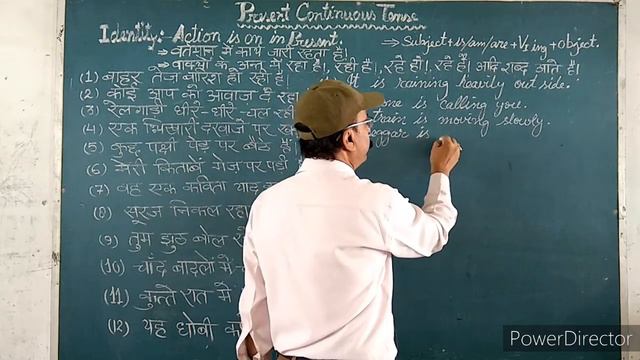 Present Continuous Tense
Identity:- Action is on in Present.
→ वर्तमान में कार्य जारी रहता है।
→ Subject + is/am/are + V₁ ing + Object.
→ वाक्यों के अन्त में रहा है।, रही है।, रहे हो।, रहे हैं। आदि शब्द आते हैं।
(1) बाहर तेज बारिश हो रही है। It is raining heavily out side.
(2) कोई आप को आवाज दे रहा one is calling you.
(3) रेलगाड़ी धीरे-धीरे चल रही train is moving slowly.
(4) एक भिखारी दरवाजे पर ggar is
(5) कुछ पक्षी पेड़ पर बैठे हैं
(6) मेरी किताबें मेज पर पड़ी
(7) वह एक कविता याद क
(8) सूरज निकल रहा
(9) तुम झूठ बोल र
(10) चाँद बादलों में
(11) कुत्ते रात में
(12) यह धोबी क
PowerDirector